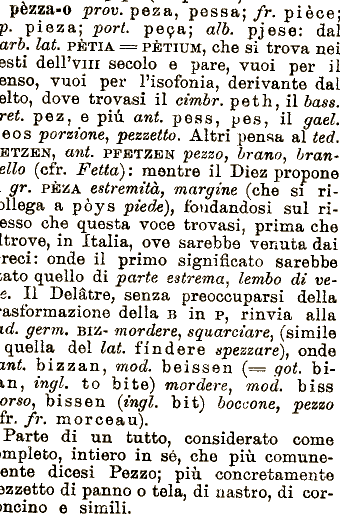 pèzza-o prov. peza, pessa; fr. pièce;
p. pieza; port. peça; alb. pjese: dal
arb. lat. PÈTIA = PÈTIUM, che si trova nei
esti dell'VIII secolo e pare, vuoi per il
enso, vuoi per l'isofonia, derivante dal
elto, dove trovasi il cimbr. peth, il bass.
ret. pez, e più ant. pess, pes, il gael.
eos porzione, pezzetto. Altri pensa al ted.
ETZEN, ant. PFETZEN pezzo, brano, bran-
ello (cfr. Fetta): mentre il Diez propone
gr. PÈZA estremità, margine (che si ri-
ollega a pòys piede), fondandosi sul ri-
esso che questa voce trovasi, prima che
ltrove, in Italia, ove sarebbe venuta dai
reci: onde il primo significato sarebbe
tato quello di parte estrema, lembo di ve-
e. Il Delâtre, senza preoccuparsi della
rasformazione della B in P, rinvia alla
ad. germ. BIZ- mordere, squarciare, (simile
quella del lat. fíndere spezzare), onde
ant. bizzan, mod. beissen (= got. bi-
an, ingl. to bite) mordere, mod. biss
orso, bissen (ingl. bit) boccone, pezzo
fr. fr. morceau).
Parte di un tutto, considerato come
mpleto, intiero in sé, che più comune-
ente dicesi Pezzo; più concretamente
ezzetto di panno o tela, di nastro, di cor-
oncino e simili.